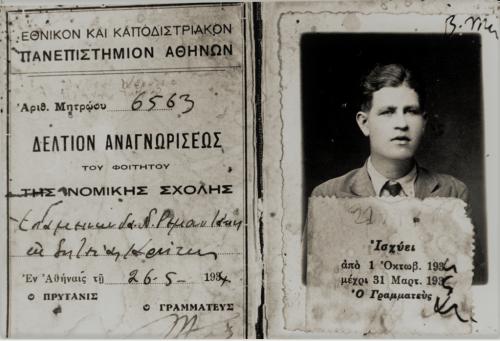 ΕΘΝΙΚΟΝ ΚΑΙ ΚΑΠΟΔΙΣΤΡΙΑΚΟΝ
ΠΑΝΕΠΙΣΤΗΜΙΟΝ ΑΘΗΝΩΝ
Ἀριθ. Μητρῴου 6563
ΔΕΛΤΙΟΝ ΑΝΑΓΝΩΡΙΣΕΩΣ
ΤΟΥ ΦΟΙΤΗΤΟΥ
ΤΗΣ ΝΟΜΙΚΗΣ ΣΧΟΛΗΣ
Ἐπαμεινώνδα
ἐκ Σητείας Κρήτης
Ἐν Ἀθήναις τῇ 26-5- 1934
Ο ΠΡΥΤΑΝΙΣ Ο ΓΡΑΜΜΑΤΕΥΣ
21
Ἰσχύει
ἀπὸ 1 Ὀκτωβ. 193
μέχρι 31 Μαρτ. 193
Ὁ Γραμματεὺς